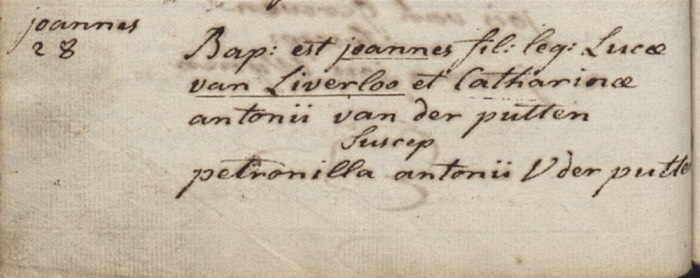 joannes
28
Bap: est joannes fil: leg: Lucæ
van Liverloo et Catharinæ
antonii van der putten
Suscep
petronilla antonii Vder putte